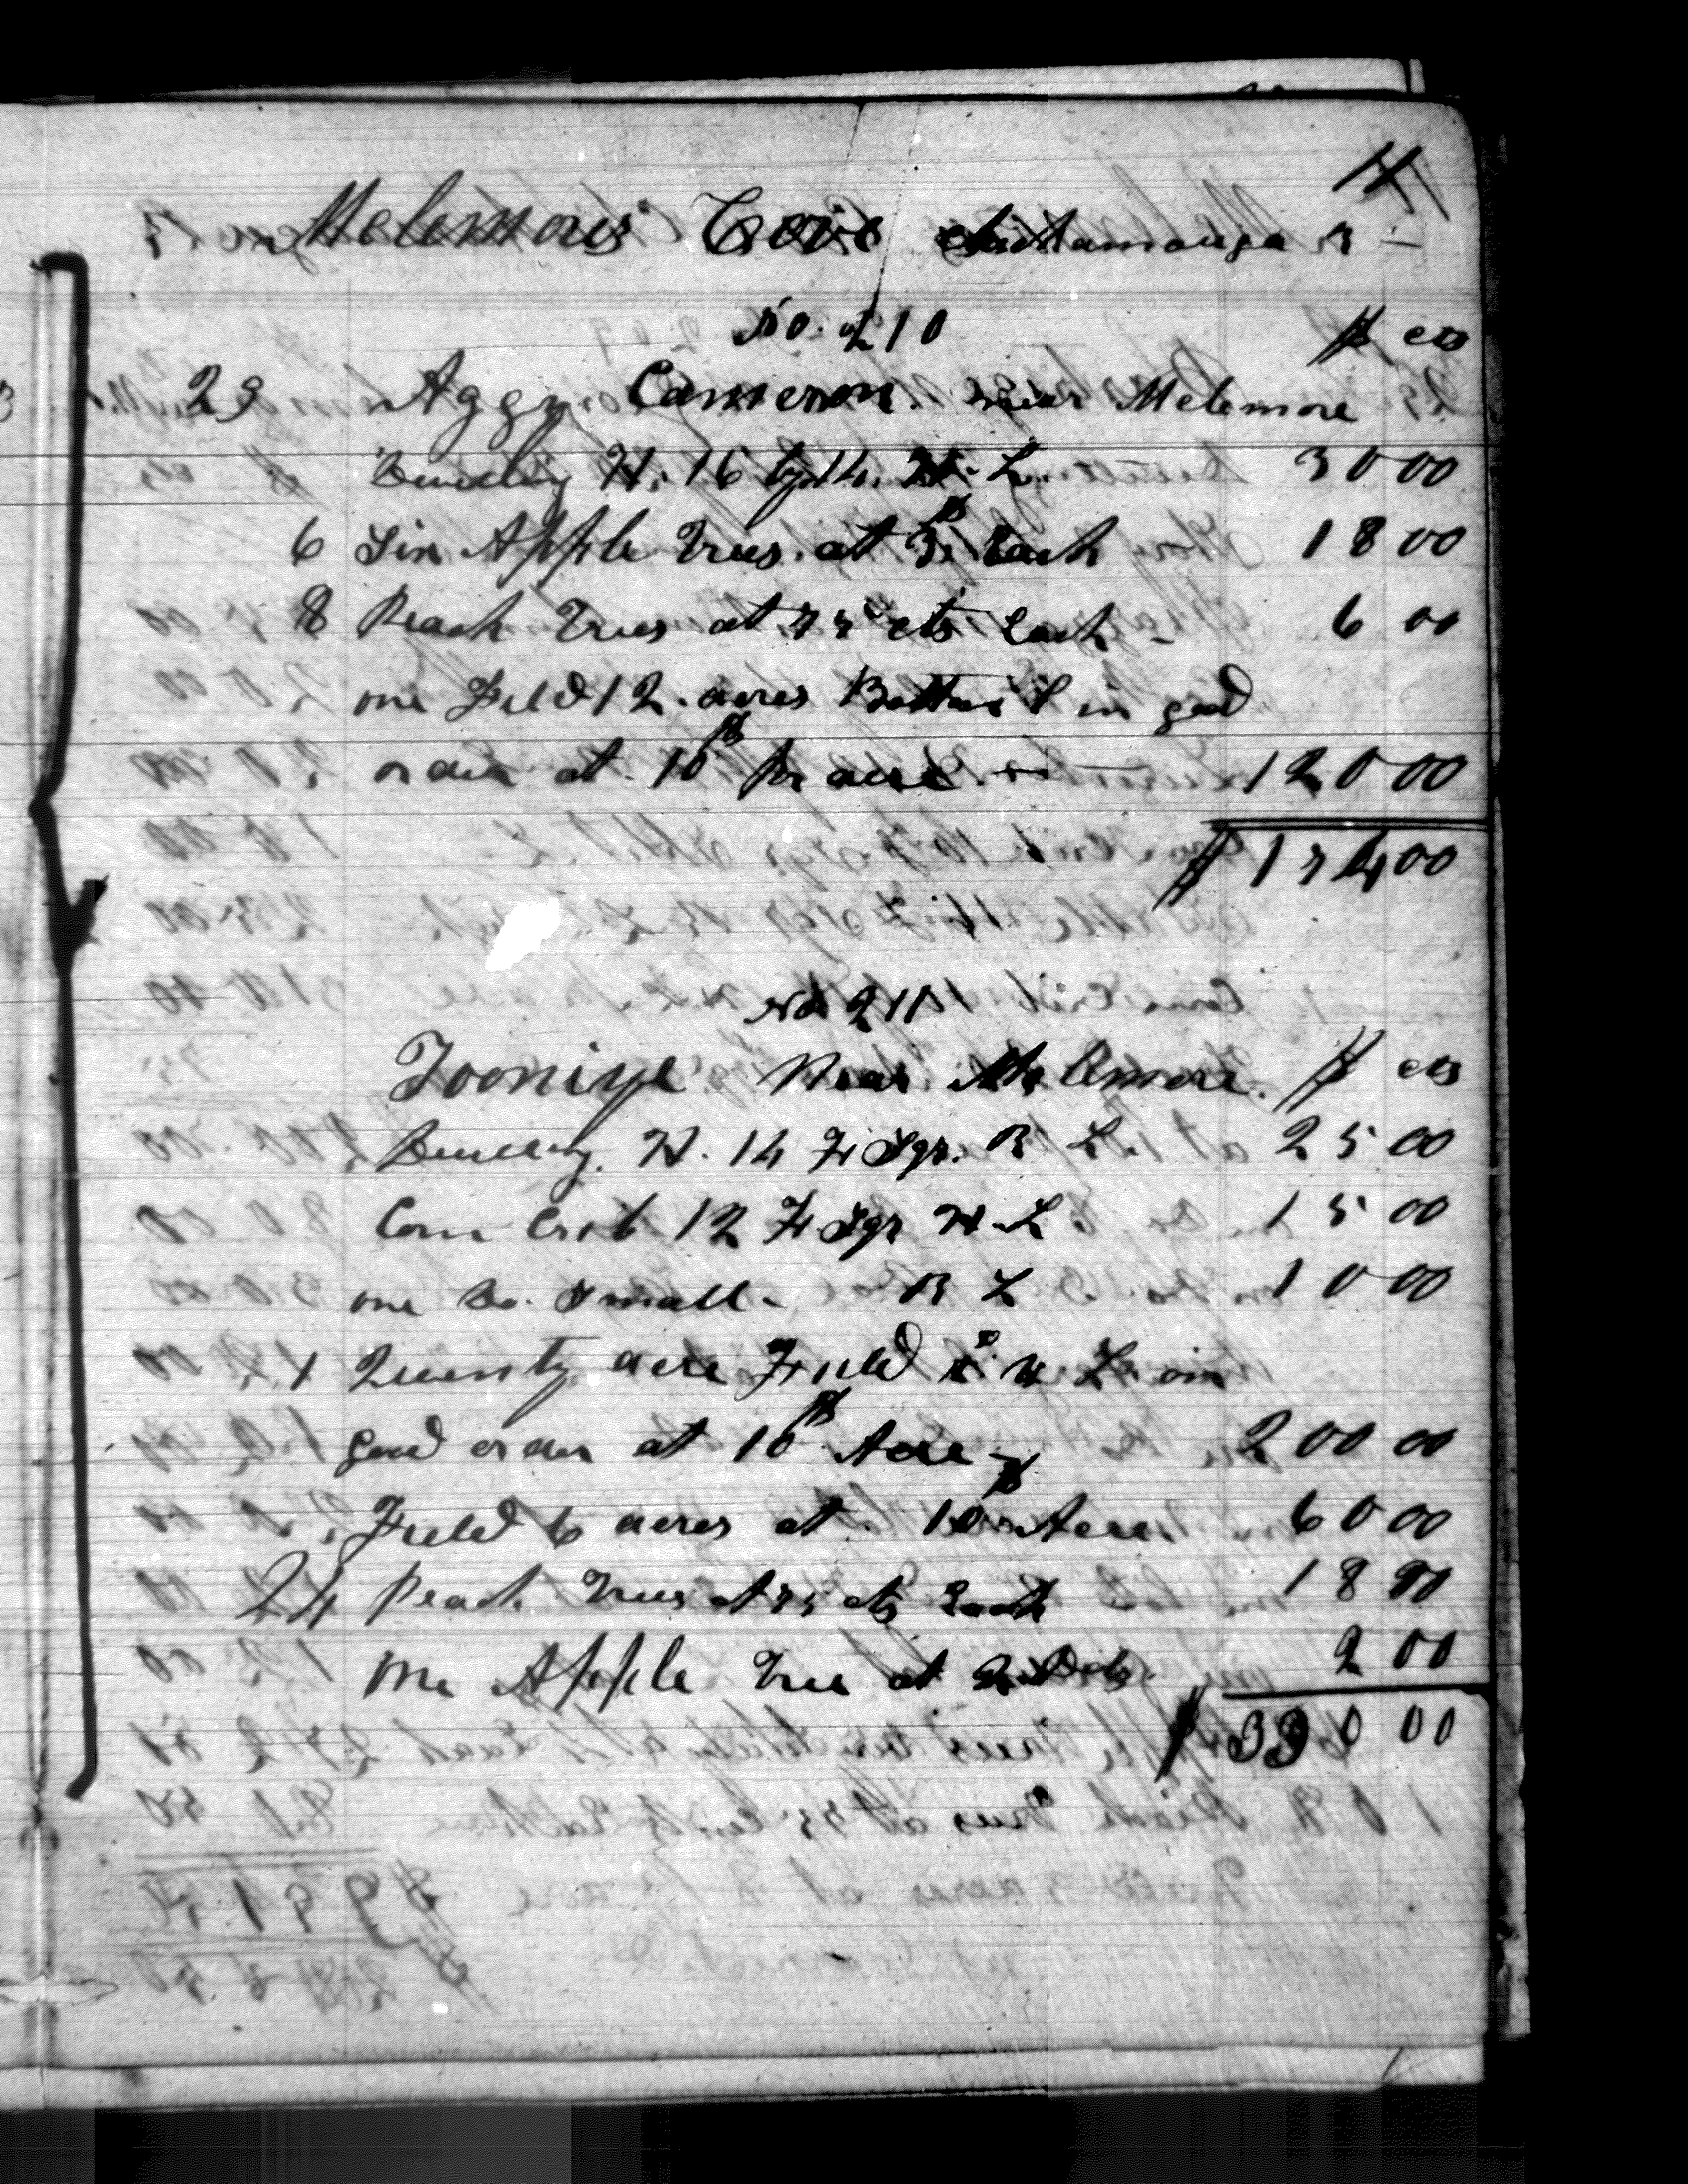 Mclemores Cove Chictamauga R
No. 210
$ cts
29 Aggy Cameron near Mclemore
Dwelling H. 16 by 14 H. L. 30 00
6 Six Apple Trees at 3$ Each 18 00
8 Peach Trees at 75 cts Each 6 00
one Field 12 acres Bottom L in good
order at 10$ pr acre 120 00
$ 174 00
No 211
Tooniye Near Mclemore $ cts
Dwelling H. 14 Ft Sqr. R L 25 00
Corn Crib 12 Ft Sqr H L 15 00
one Do. Small R L 10 00
1 Twenty acre Field L in
good order at 10$ Acre 200 00
Field 6 acres at 10$ Acre 60 00
24 Peach Trees at 75 cts Each 18 00
one Apple Tree at 2 Dols. 2 00
$ 330 00